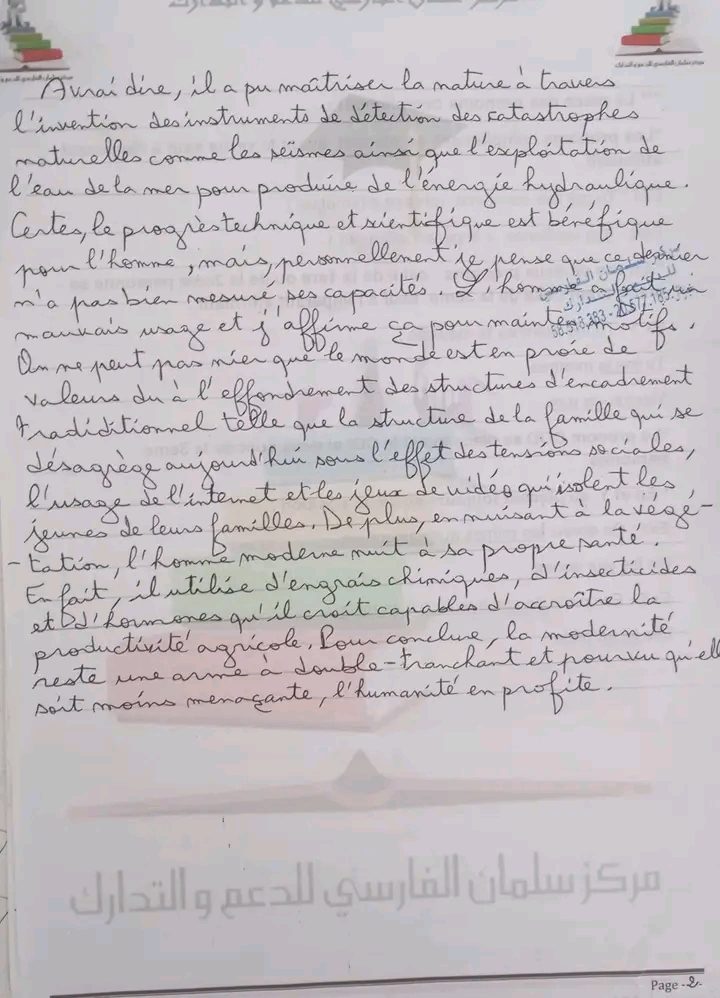 مركز سلمان الفارسي للدعم و التدارك
A vrai dire, il a pu maîtriser la nature à travers
l'invention des instruments de détection des catastrophes
naturelles comme les séismes ainsi que l'exploitation de
l'eau de la mer pour produire de l'énergie hydraulique.
Certes, le progrès technique et scientifique est bénéfique
pour l'homme, mais, personnellement je pense que ce dernier
n'a pas bien mesuré ses capacités. L'homme a fait un
mauvais usage et j'affirme ça pour maintes motifs.
On ne peut pas nier que le monde est en proie de
valeurs du à l'effondrement des structures d'encadrement
tradiditionnel telle que la structure de la famille qui se
désagrège aujourd'hui sous l'effet des tensions sociales,
l'usage de l'internet et les jeux de vidéo qui isolent les
jeunes de leurs familles. De plus, en nuisant à la végé-
-tation, l'homme moderne nuit à sa propre santé.
En fait, il utilise d'engrais chimiques, d'insecticides
et d'hormones qu'il croit capables d'accroître la
productivité agricole. Pour conclure, la modernité
reste une arme à double-tranchant et pourvu qu'ell
soit moins menaçante, l'humanité en profite.
مركز سلمان الفارسي للدعم و التدارك
Page -2-